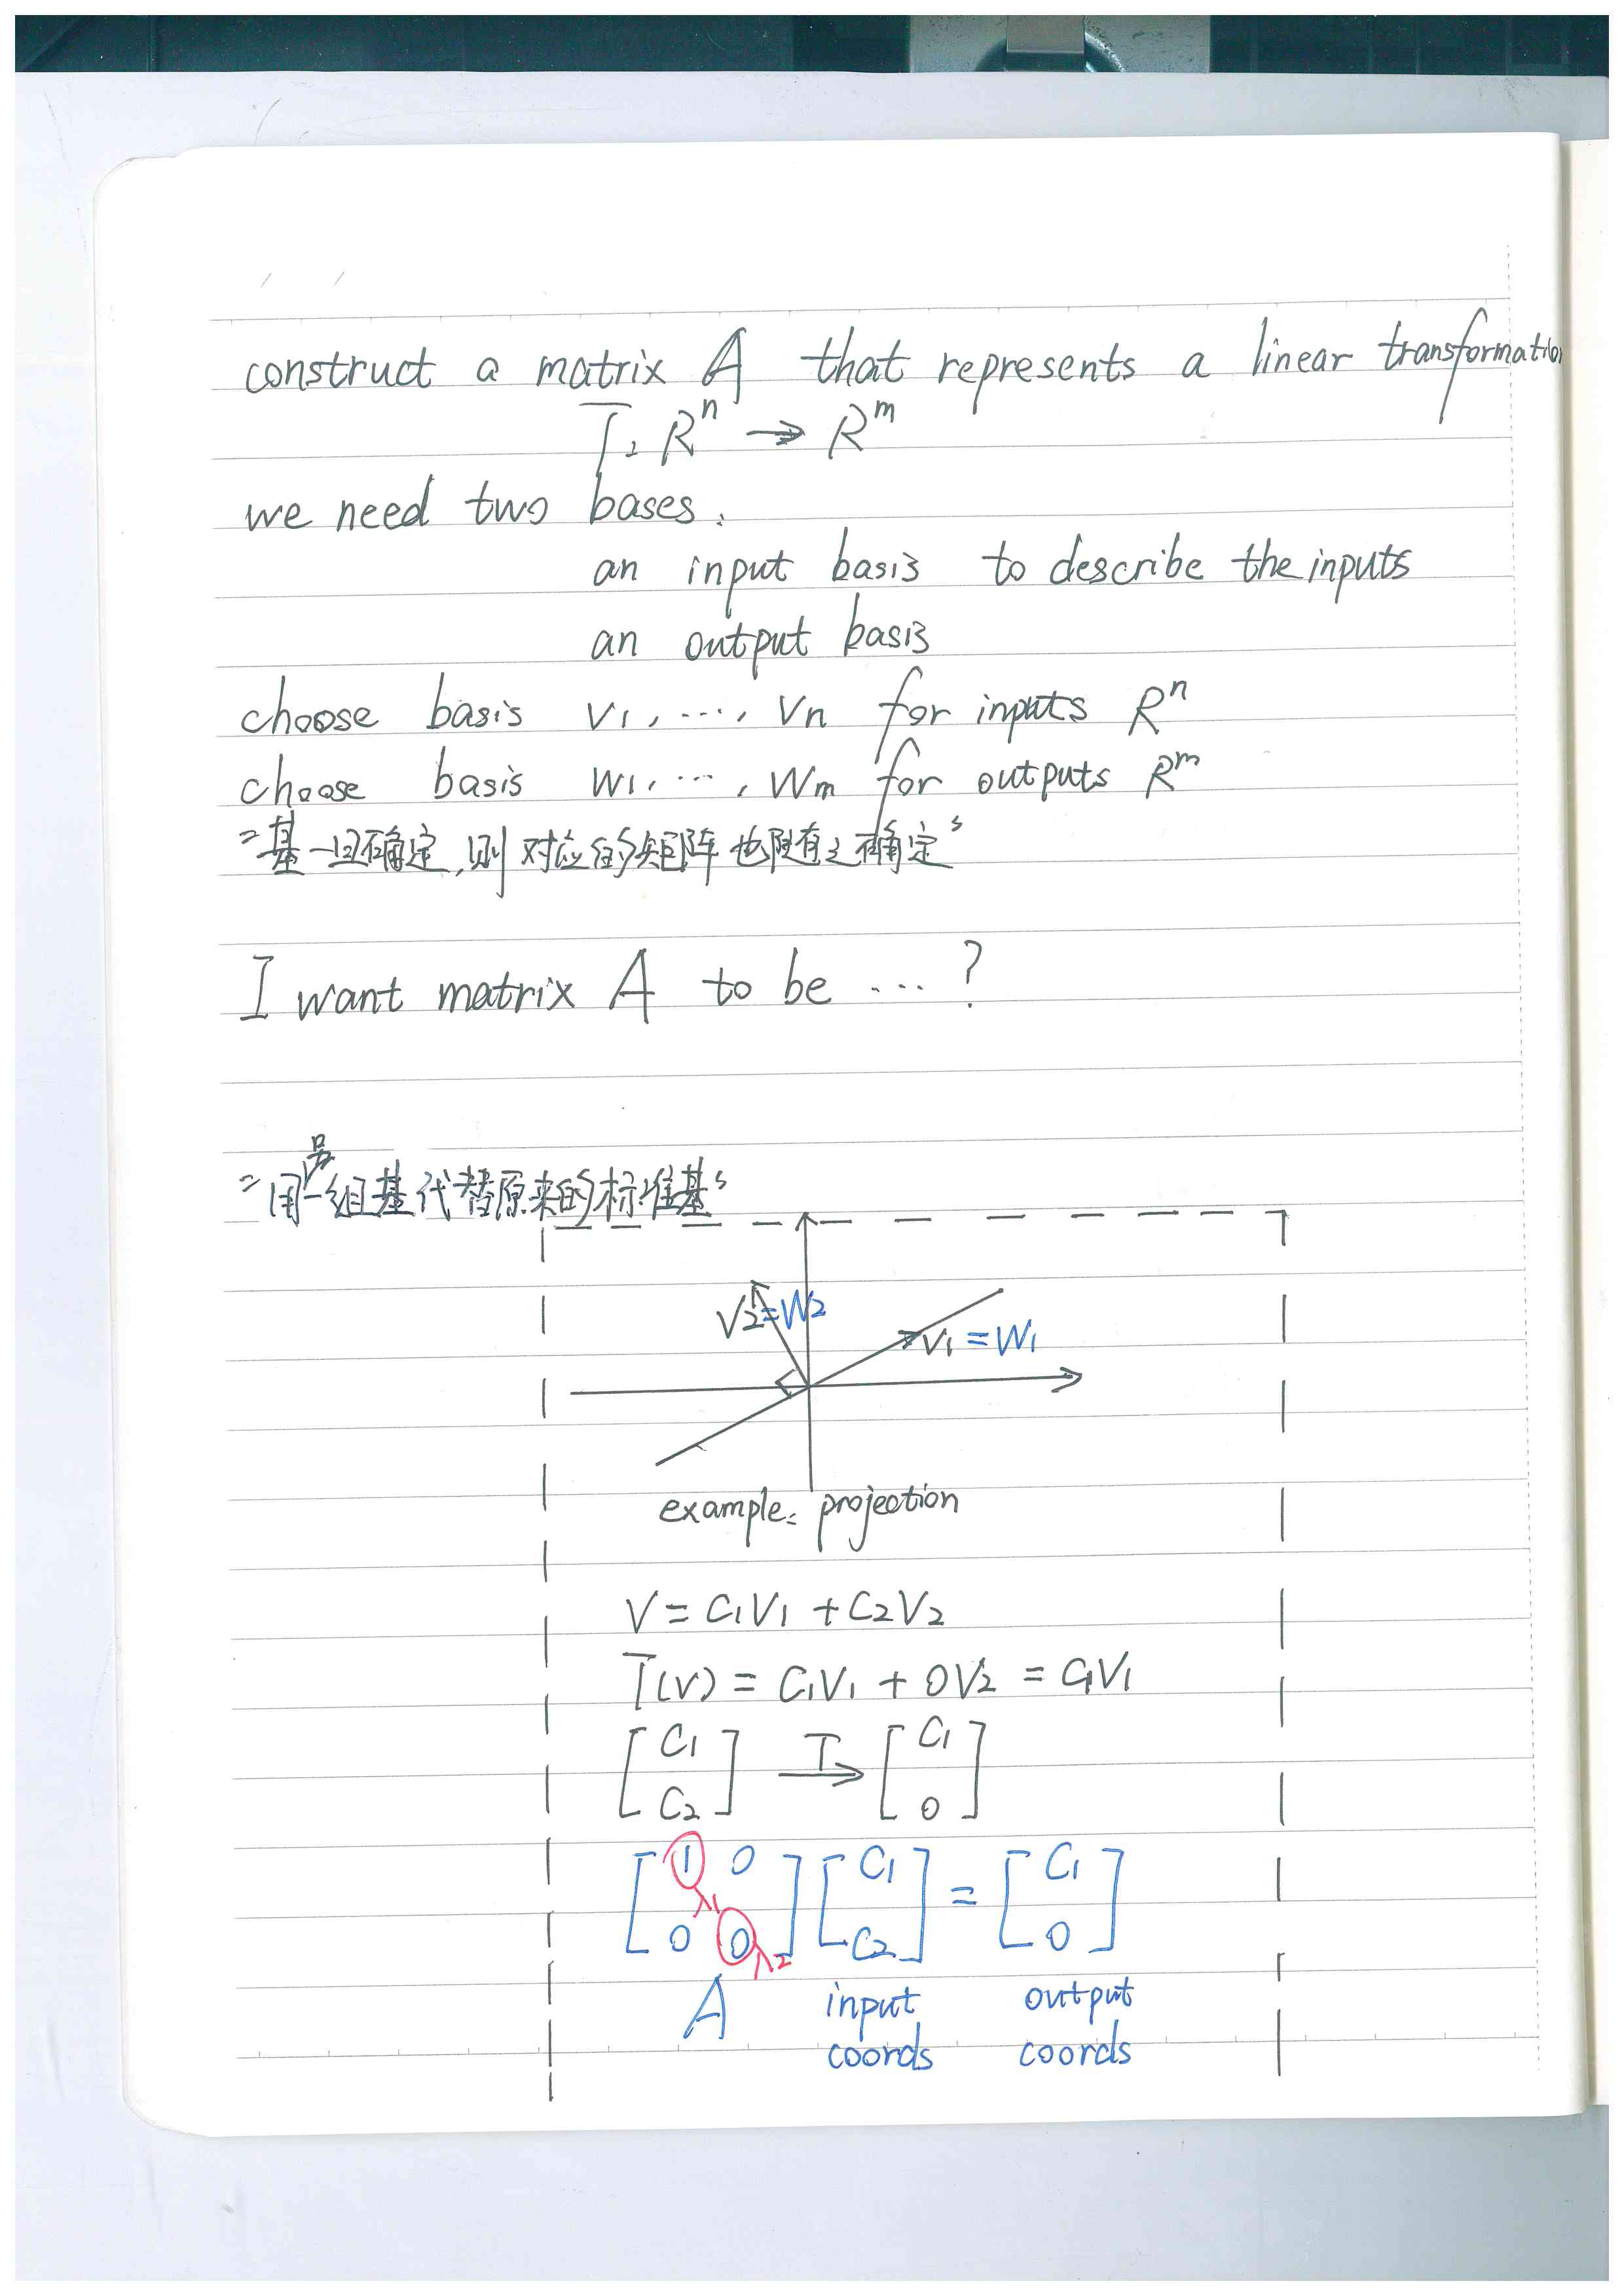 construct a matrix A that represents a linear transformation
T: Rⁿ → Rᵐ
we need two bases.
an input basis to describe the inputs
an output basis
choose basis v₁, ⋯, vₙ for inputs Rⁿ
choose basis w₁, ⋯, wₘ for outputs Rᵐ
"基一旦确定,则对应的矩阵也随着之确定"
I want matrix A to be ⋯ ?
"用另一组基代替原来的标准基"
V₂=W₂
V₁=W₁
example: projection
V = C₁V₁ + C₂V₂
T(V) = C₁V₁ + 0V₂ = C₁V₁
[C₁ C₂] T→ [C₁ 0]
[1 0 0 0] [C₁ C₂] = [C₁ 0]
λ₁
λ₂
A input coords output coords